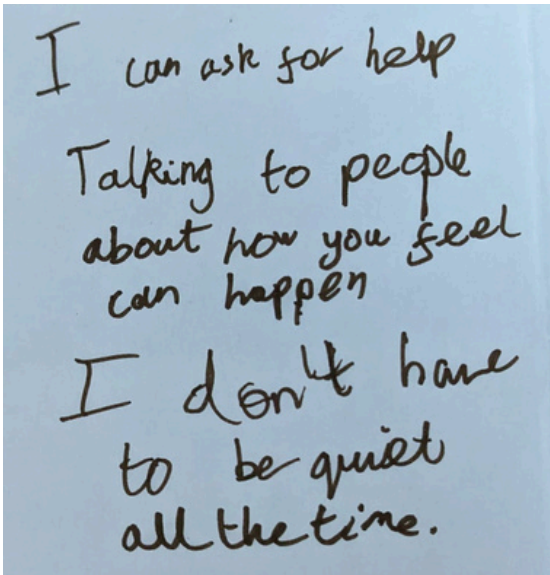 I can ask for help
Talking to people
about how you feel
can happen
I don't have
to be quiet
all the time.